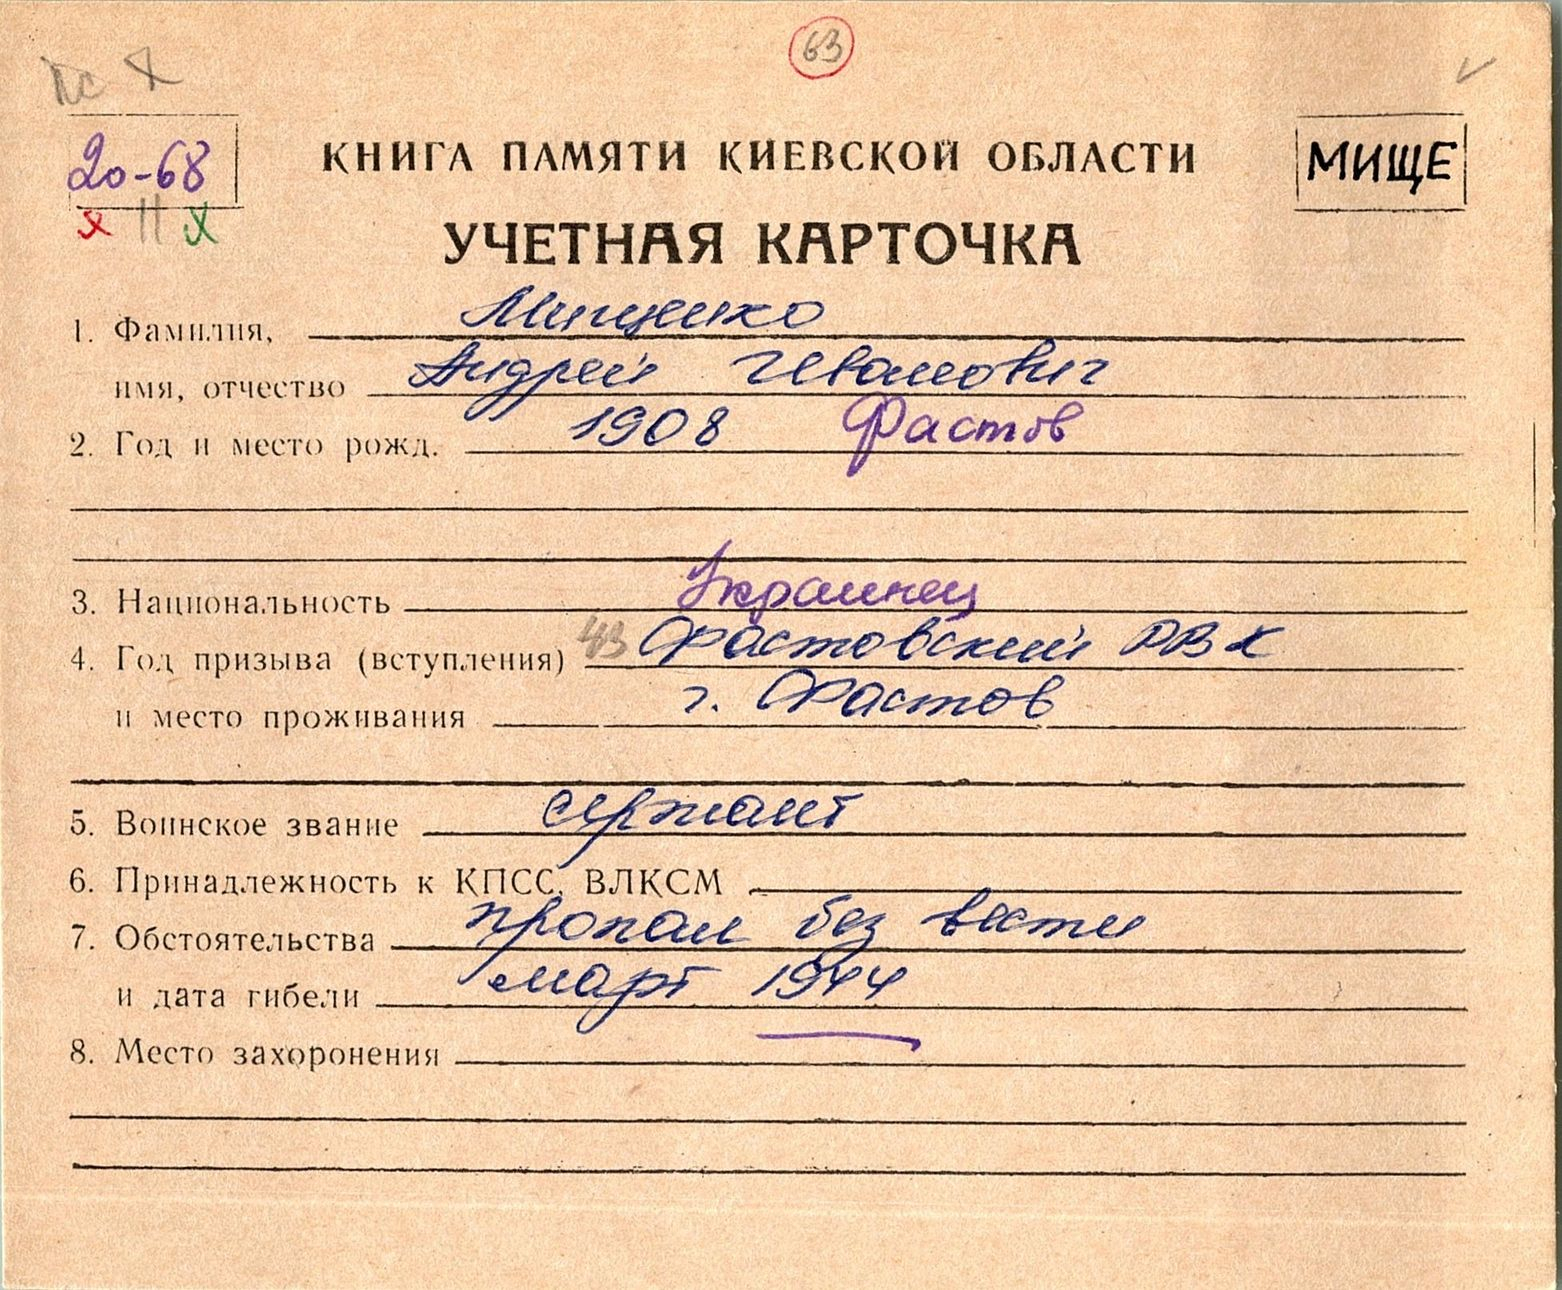 63
20-68
КНИГА ПАМЯТИ КИЕВСКОЙ ОБЛАСТИ
МИЩЕ
УЧЕТНАЯ КАРТОЧКА
1. Фамилия, Мищенко
имя, отчество Андрей Иванович
2. Год и место рожд. 1908 Фастов
3. Национальность Украинец
4. Год призыва (вступления) 43 Фастовский РВК
и место проживания г. Фастов
5. Воинское звание сержант
6. Принадлежность к КПСС, ВЛКСМ
7. Обстоятельства пропал без вести
и дата гибели март 1944
8. Место захоронения